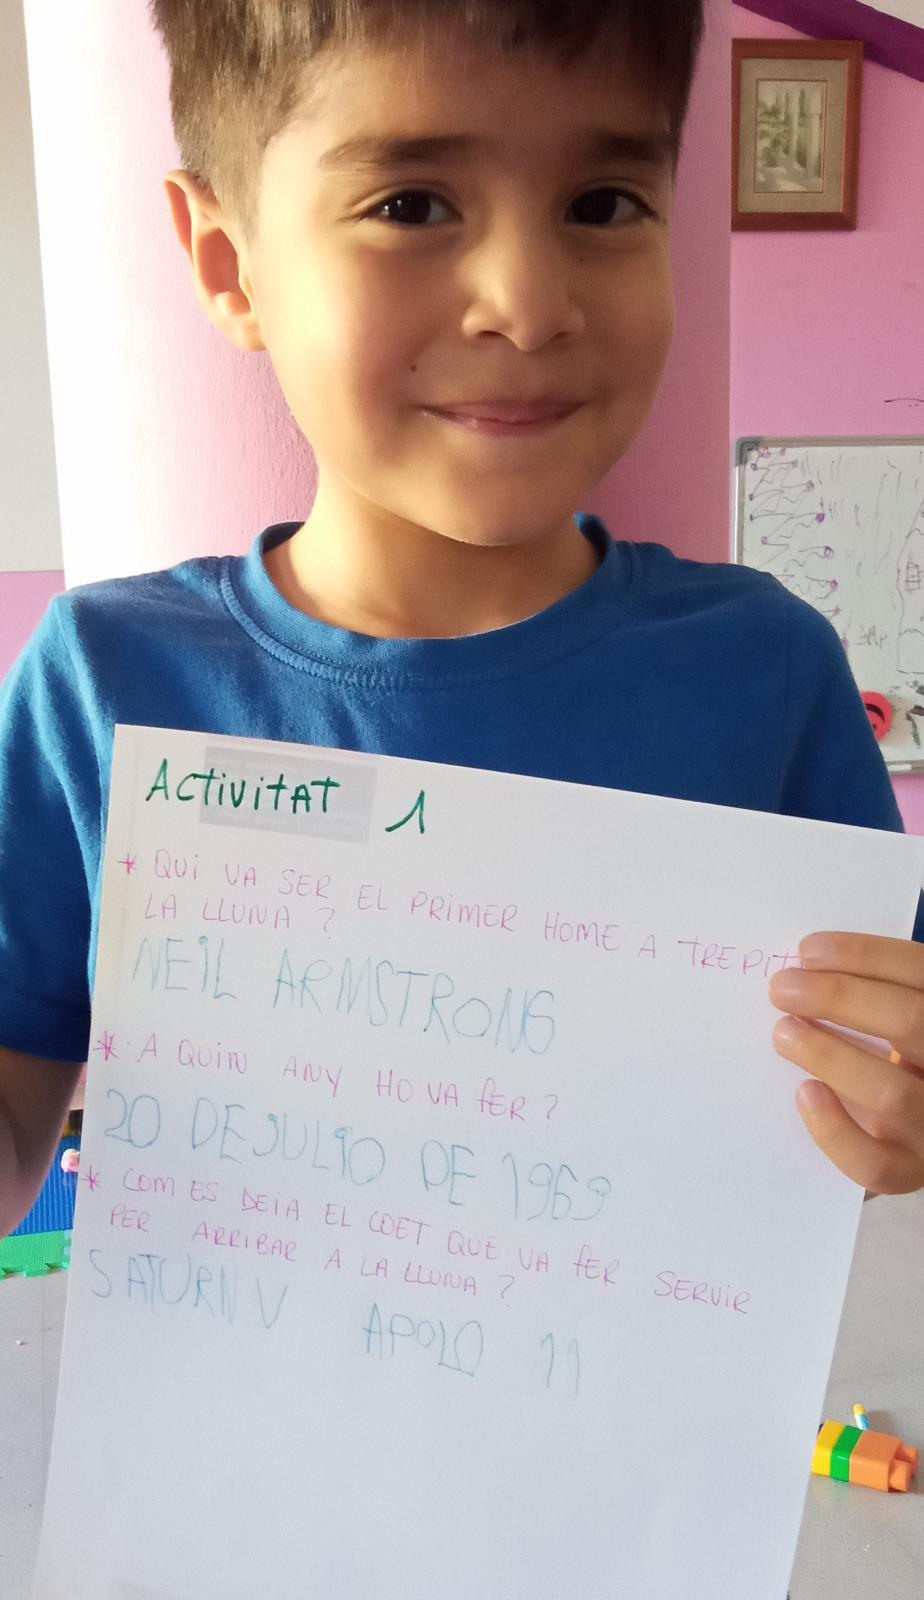 ACTIVITAT 1
* QUI VA SER EL PRIMER HOME A TREPIT
LA LLUNA?
NEIL ARMSTRONG
* A QUIN ANY HO VA FER?
20 DE JULIO DE 1969
* COM ES DEIA EL COET QUE VA FER SERVIR
PER ARRIBAR A LA LLUNA?
SATURN V APOLO 11